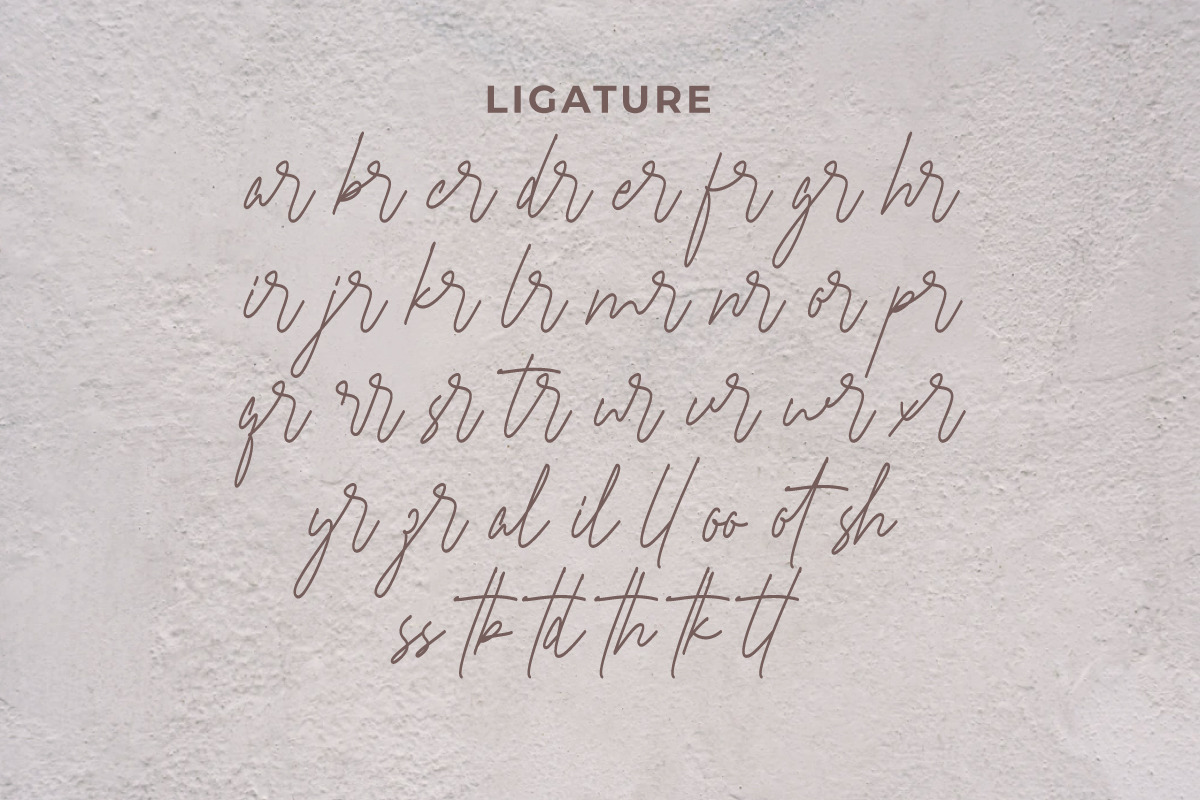 LIGATURE
ar br cr dr er fr gr hr
ir jr kr lr mr nr or pr
qr rr sr tr ur vr wr xr
yr zr al il ll oo ot sh
ss tb td th tk tt